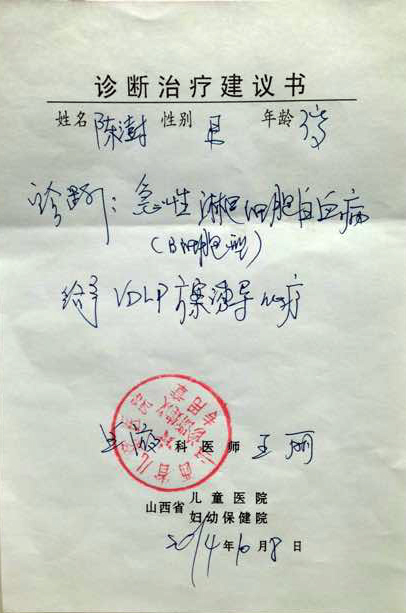 诊断治疗建议书
姓名 陈澍 性别 男 年龄 3岁
诊断：急性淋巴细胞白血病
（B细胞型）
给予VDLP方案诱导化疗
血液科医师 王丽
山西省儿童医院
妇幼保健院
2014年10月8日